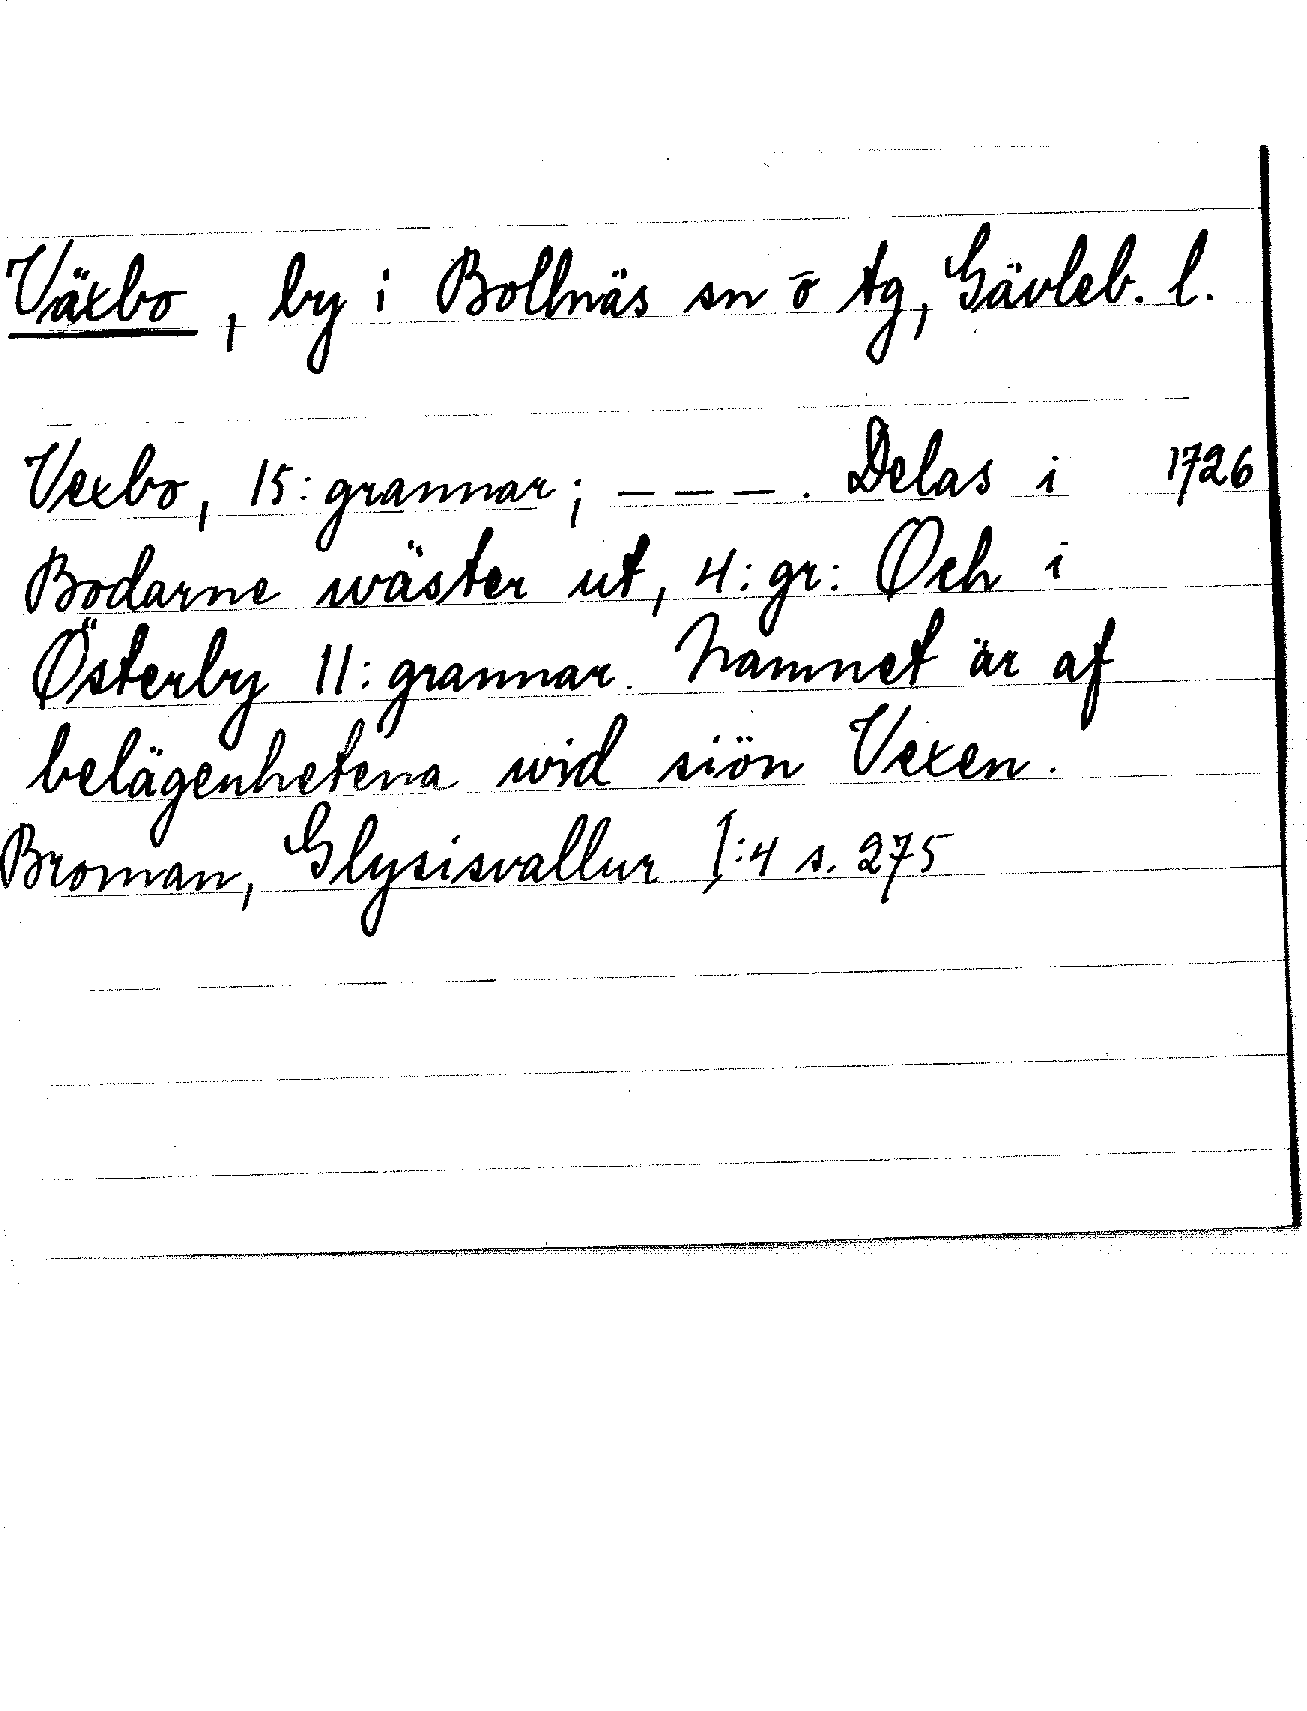 Växbo, by i Bollnäs sn o tg, Gävleb. l.
Vexbo, 15: grannar; – – – . Delas i 1726
Bodarne wäster ut, 4: gr: Och i
Österby 11: grannar. Namnet är af
belägenhetena wid siön Vexen.
Broman, Glysisvallur I:4 s. 275